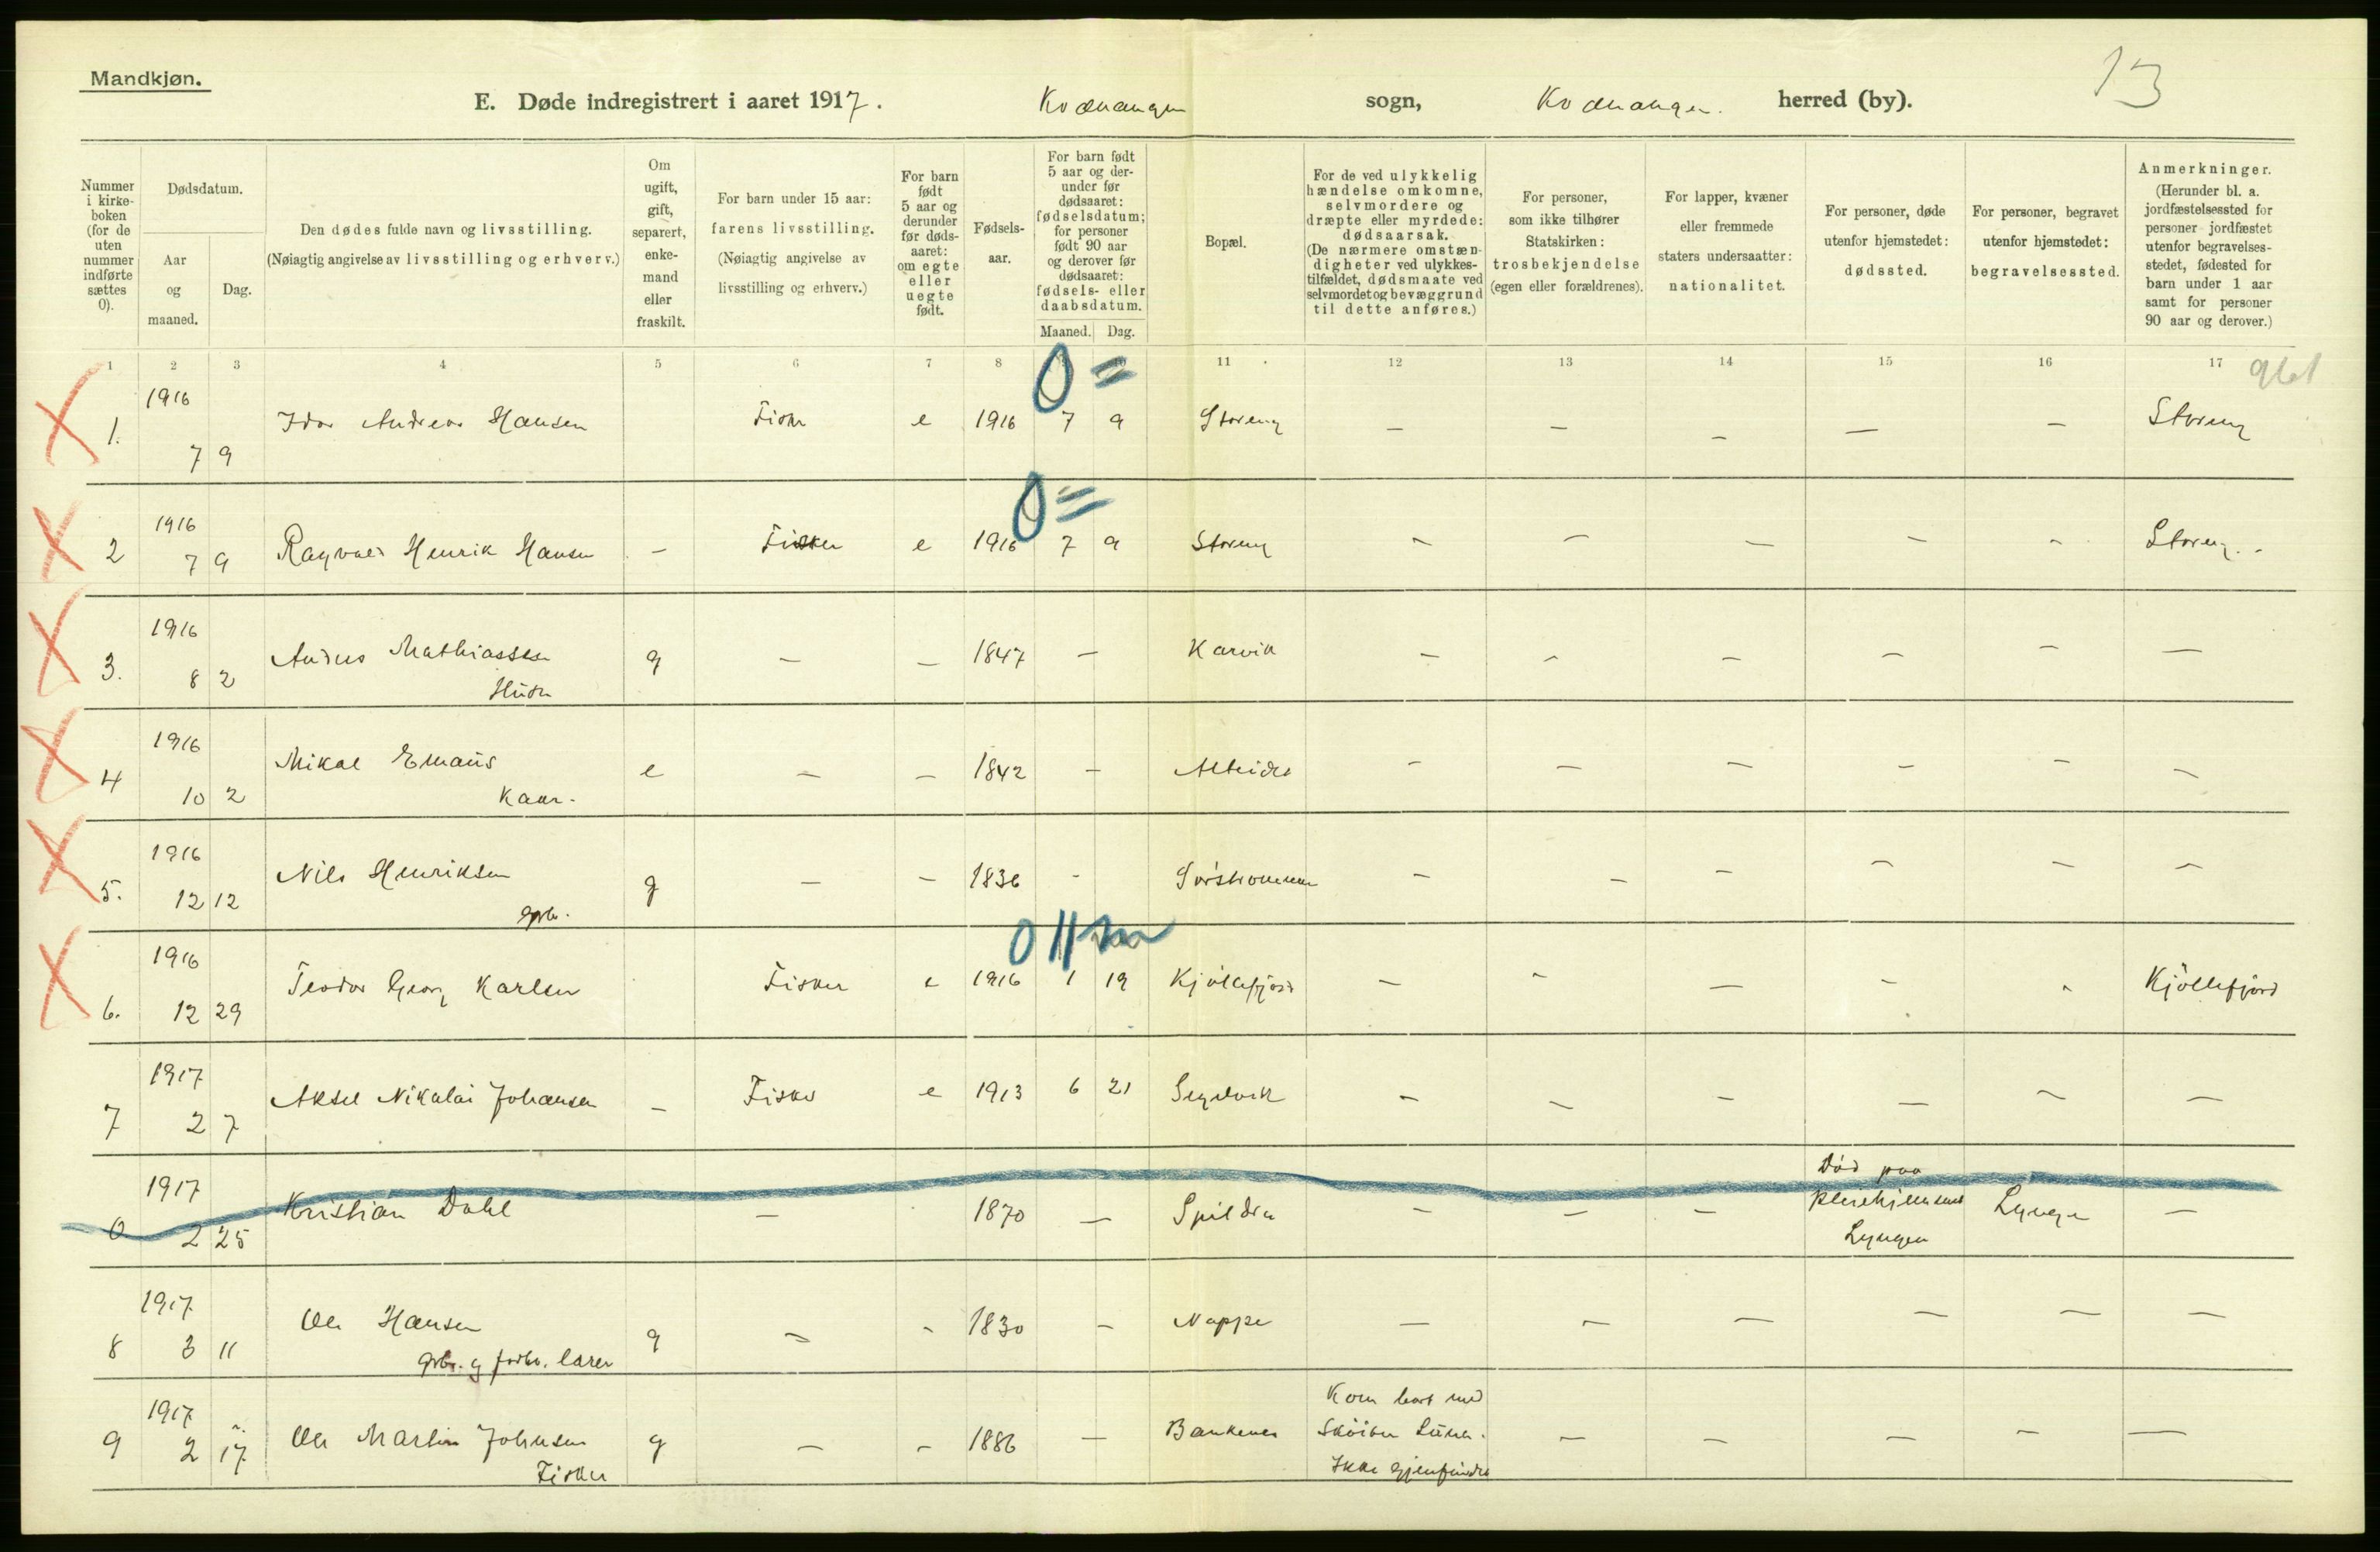 Mandkjøn.
13
E. Døde indregistrert i aaret 1917. Kvænangen sogn, Kvænangen. herred (by).
Nummer i kirke-boken (for de uten nummer indførte sættes 0).
Dødsdatum.
Aar og maaned.
Dag.
Den dødes fulde navn og livsstilling.
(Nøiagtig angivelse av livsstilling og erhverv.)
Om ugift, gift, separert, enke-mand eller fraskilt.
For barn under 15 aar: farens livsstilling. (Nøiagtig angivelse av livsstilling og erhverv.)
For barn født 5 aar og derunder før døds-aaret: om egte eller uegte født.
Fødsels-aar.
For barn født 5 aar og der-under før dødsaaret: fødselsdatum; for personer født 90 aar og derover før dødsaaret: fødsels- eller daabsdatum.
Maaned. Dag.
Bopæl.
For de ved ulykkelig hændelse omkomne, selvmordere og dræpte eller myrdede: dødsaarsak. (De nærmere omstæn-digheter ved ulykkes-tilfældet, dødsmaate ved selvmordet og bevæggrund til dette anføres.)
For personer, som ikke tilhører Statskirken: trosbekjendelse (egen eller forældrenes).
For lapper, kvæner eller fremmede staters undersaatter: nationalitet.
For personer, døde utenfor hjemstedet: dødssted.
For personer, begravet utenfor hjemstedet: begravelsessted.
Anmerkninger. (Herunder bl. a. jordfæstelsessted for personer jordfæstet utenfor begravelses-stedet, fødested for barn under 1 aar samt for personer 90 aar og derover.)
1 2 3 4 5 6 7 8 11 12 13 14 15 16 17
0 =
1. 1916 7 9 Andreas Hansen Fisker e 1916 7 9 Storeng — — — — — Storeng
0 =
2 1916 7 9 Ragvald Henrik Hansen — Fisker e 1916 7 9 Storeng — — — — — Storeng. -
3. 1916 8 2 Anders Mathiassen g — — 1847 — Karvik — — — — — —
4 1916 10 2 Mikal Emaus e — — 1842 — Alteidet — — — — — —
Kaar.
5. 1916 12 12 Nils Henriksen g — — 1836 - Sörstrommen — — — — — —
gbr.
0 ||
6. 1916 12 29 Teodor Georg Karlsen Fisker e 1916 1 19 Kjöllefjord — — — — — Kjöllefjord
7 1917 2 7 Aksel Nikolai Johansen — Fisker e 1913 6 21 Segelvik — — — — — —
0 1917 2 25 Kristian Dahl — 1870 — Spildra — — — Död paa Pleiehjemmet Lyngen Lyngen —
8 1917 3 11 Ole Hansen g — - 1830 — Nappe — — — — — —
gbr. og forhv. lærer
9 1917 2 17 Ole Martin Johnsen g — — 1886 — Bankenes Kom bort med — — — — —
Fisker
Sköiten
Ikke gjenfundet